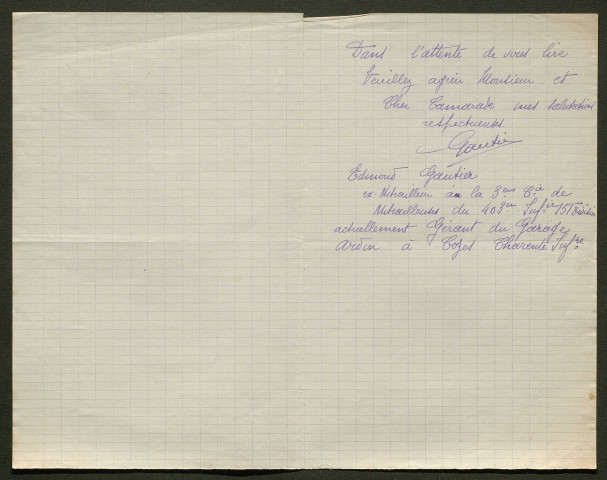 Dans l'attente de vous lire
Veuillez agréer Monsieur et
Cher Camarade mes salutations
respectueuses.
Gautier
Edmond Gautier
ex-Mitrailleur à la 3eme Cie de
Mitrailleuses du 403eme Inf.ie 151 Division
actuellement Gérant du Garage
Arden à Cozes Charente Infre